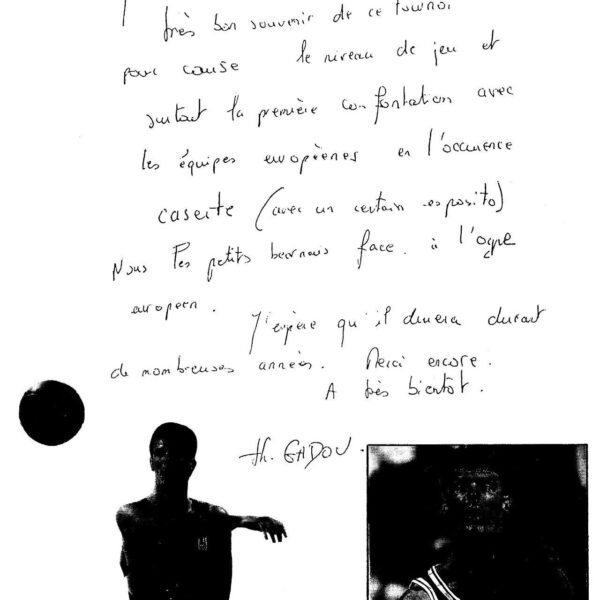 très bon souvenir de ce tournoi
pour cause le niveau de jeu et
surtout la première confontation avec
les équipes européenes en l'occurence
caserte (avec un certain esposito)
Nous les petits bearnais face à l'ogre
européen.
J'espère qu'il durera durant
de nombreuses années. Merci encore.
A très bientôt.
th. GADOU.